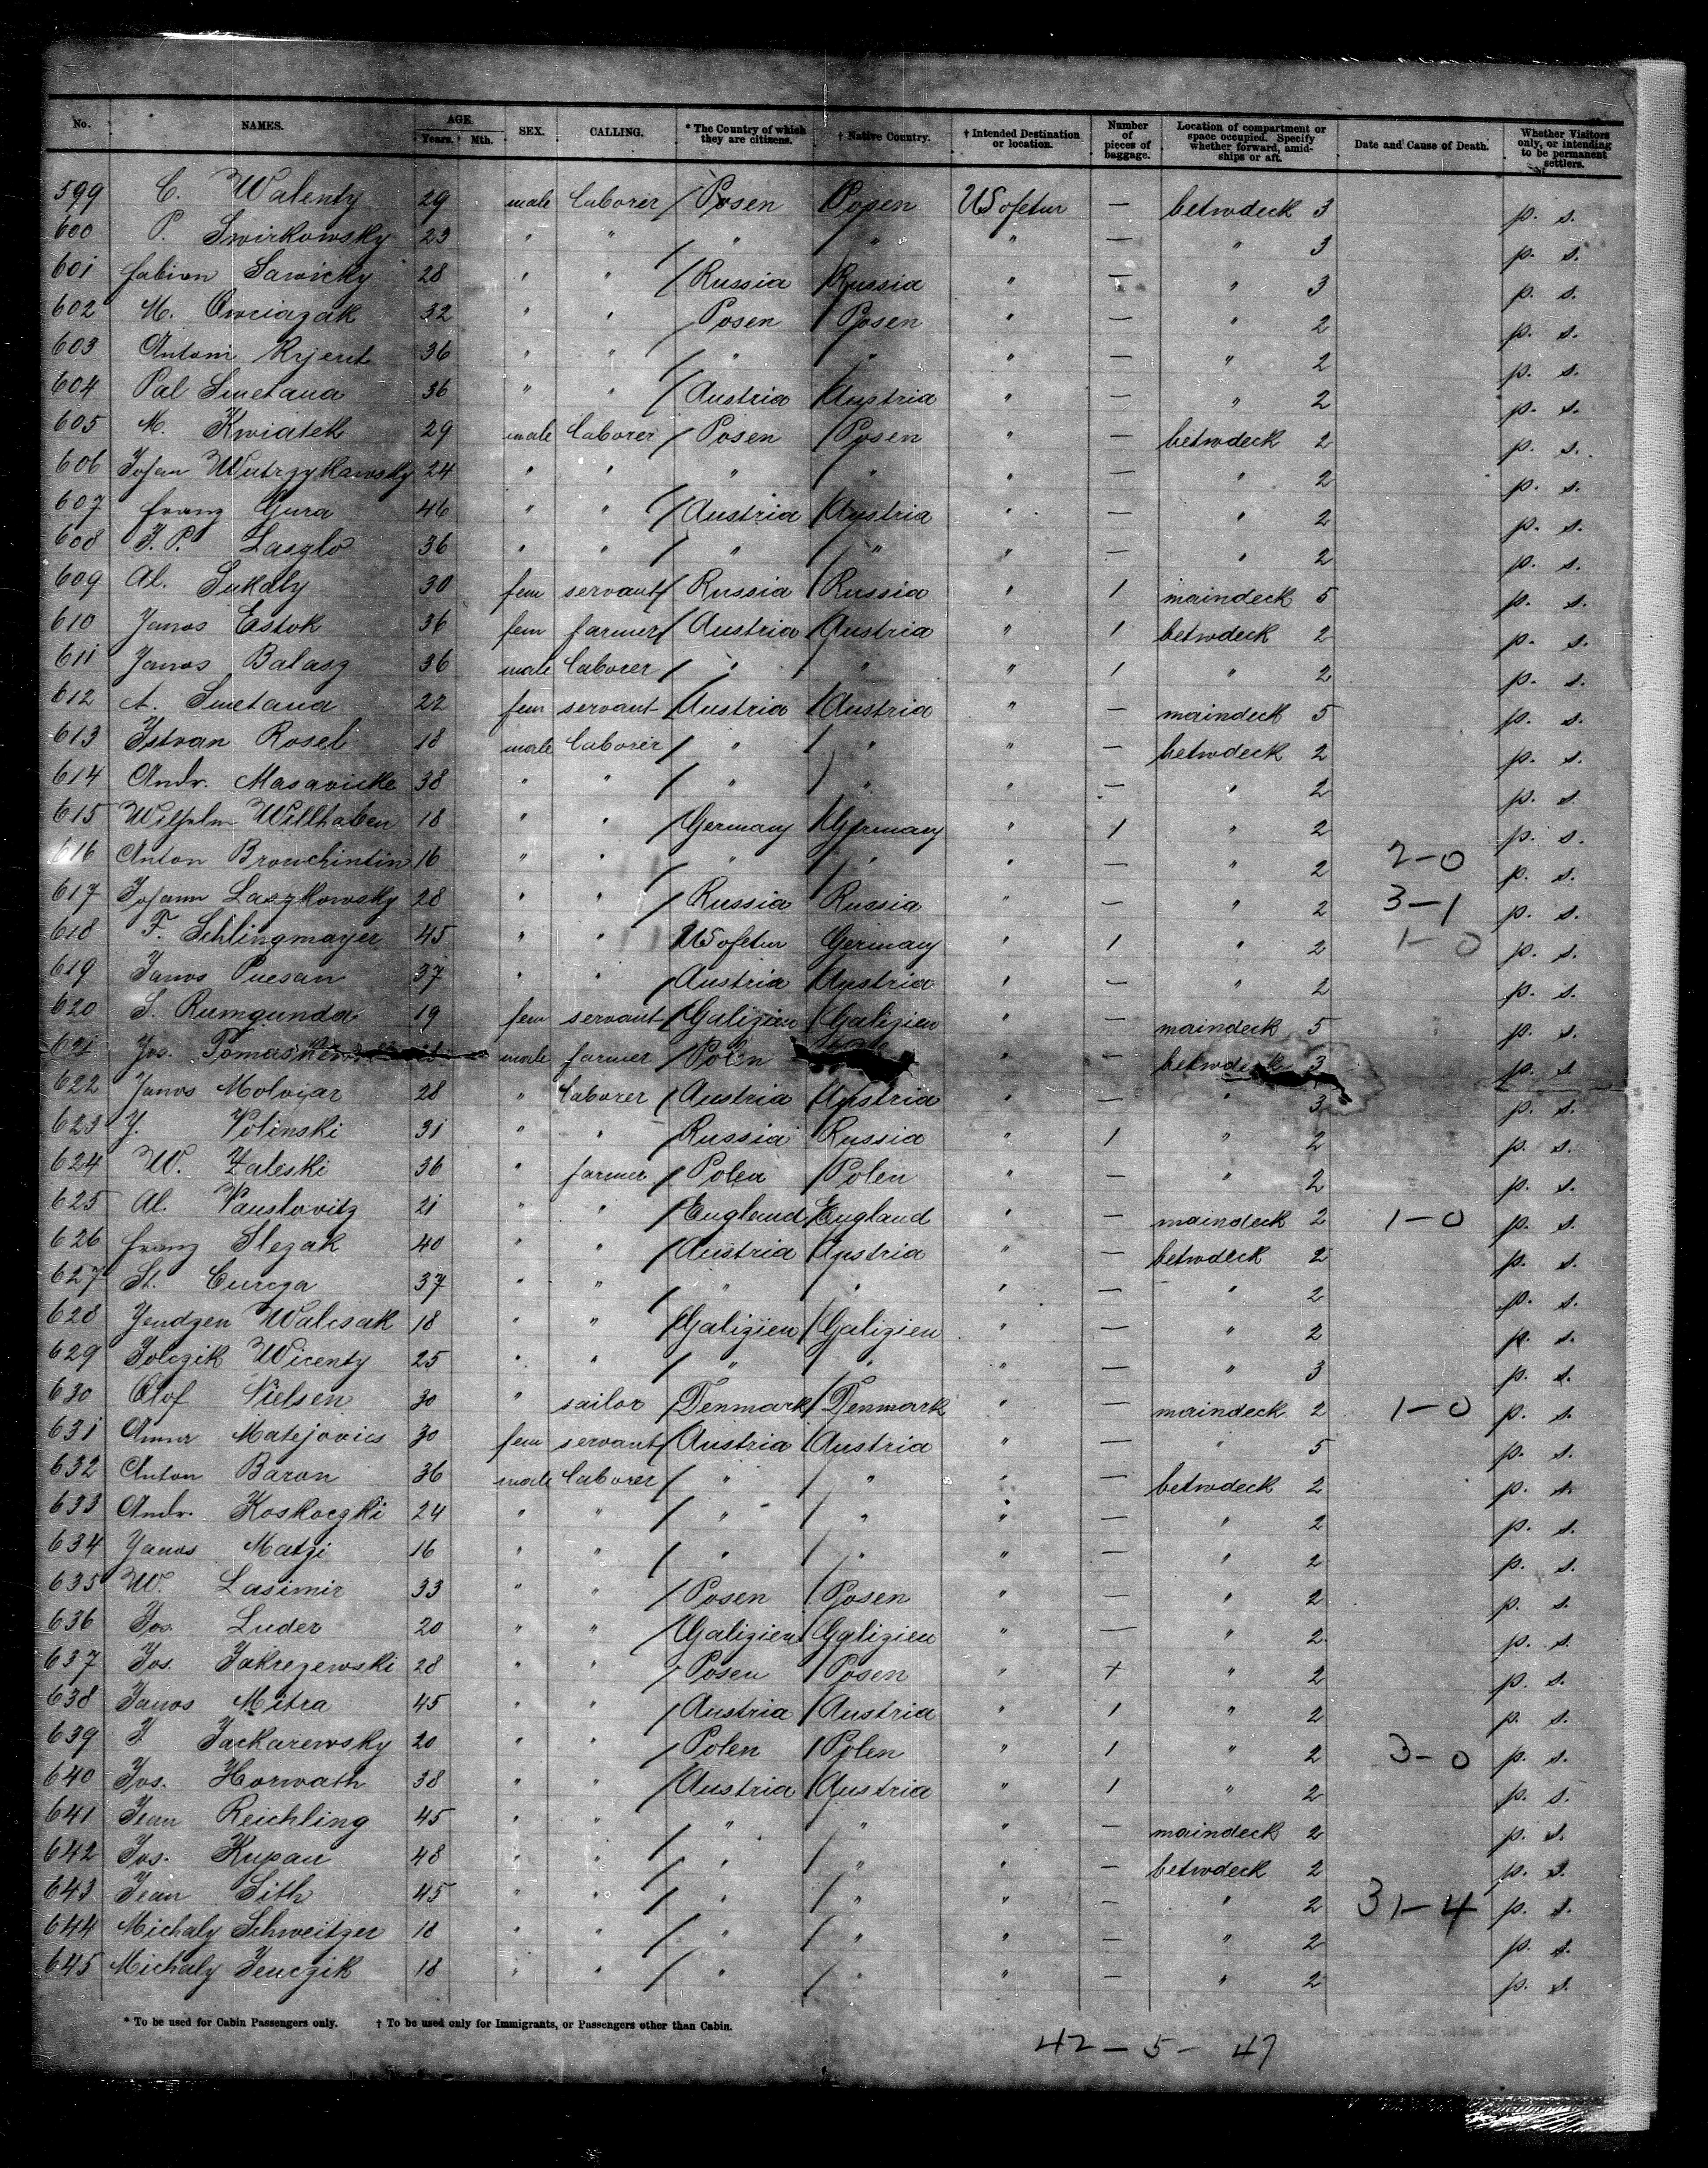 No. NAMES. AGE Years. Mth. SEX. CALLING. * The Country of which they are citizens. † Native Country. † Intended Destination or location. Number of pieces of baggage. Location of compartment or space occupied. Specify whether forward, amidships or aft. Date and Cause of Death. Whether Visitors only, or intending to be permanent settlers.
599 C. Walenty 29 male laborer / Posen / Posen — betwdeck 3 p. s.
600 P. Swirkowsky 23 " " / " / " " — " 3 p. s.
601 fabian Sawicky 28 " " / Russia / Russia " — " 3 p. s.
602 M. Owciazak 32 " " / Posen / Posen " — " 2 p. s.
603 Antoni Rzjent 36 " " / " / " " — " 2 p. s.
604 Pal Smetana 36 " " / Austria / Austria " — " 2 p. s.
605 M. Kwiatek 29 male laborer / Posen / Posen " — betwdeck 2 p. s.
606 Johan 24 " " / " / " " — " 2 p. s.
607 franz Gura 46 " " / Austria / Austria " — " 2 p. s.
608 J. P. Laszlo 36 " " / " / " " — " 2 p. s.
609 Al. Sukaly 30 fem servant / Russia / Russia " 1 maindeck 5 p. s.
610 Janos Estok 36 fem farmer / Austria / Austria " 1 betwdeck 2 p. s.
611 Janos Balasz 36 male laborer / " / " " 1 " 2 p. s.
612 A. Smetana 22 fem servant / Austria / Austria " — maindeck 5 p. s.
613 Istvan Rosel 18 male laborer / " / " " — betwdeck 2 p. s.
614 Andr. Masavicke 38 " " / " / " " — " 2 p. s.
615 Wilhelm Willhaben 18 " " / Germany / Germany " 1 " 2 p. s.
616 Anton Bronchintin 16 " " / " / " " — " 2 2-0 p. s.
617 Johann Laszkowsky 28 " " / Russia Russia " — " 2 3-1 p. s.
618 F. Schlingmayer 45 " " Germany " 1 " 2 1-0 p. s.
619 Janos Puesan 37 " " / Austria / Austria " — " 2 p. s.
620 S. Rumgunda 19 fem servant / Galizien / Galizien " — maindeck 5 p. s.
621 Jos. male farmer / Polen " — betwdeck 3 p. s.
622 Janos Molvjar 28 " laborer / Austria / Austria " — " 3 p. s.
623 J. Volinski 31 " " / Russia / Russia " 1 " 2 p. s.
624 W. Zaleski 36 " farmer / Polen / Polen " — " 2 p. s.
625 Al. Vauslovitz 21 " " / England / England " — maindeck 2 1-0 p. s.
626 franz Slezak 40 " " / Austria / Austria " — betwdeck 2 p. s.
627 St. Curcza 37 " " / " / " " — " 2 p. s.
628 Jendzen Walcsak 18 " " / Galizien / Galizien " — " 2 p. s.
629 Jolczik Wicenty 25 " " / " / " " — " 3 p. s.
630 Olof Nielsen 30 " sailor / Denmark / Denmark " — maindeck 2 1-0 p. s.
631 Anna Matejovics 30 fem servant / Austria / Austria " — " 5 p. s.
632 Anton Baron 36 male laborer / " / " " — betwdeck 2 p. s.
633 Andr. Koskoczki 24 " " / " / " " — " 2 p. s.
634 Janos Matzi 16 " " / " / " " — " 2 p. s.
635 W. Lasimir 33 " " / Posen / Posen " — " 2 p. s.
636 Jos. Luder 20 " " / Galizien / Galizien " — " 2 p. s.
637 Jos. Jakrezewski 28 " " / Posen / Posen " + " 2 p. s.
638 Janos Mitra 45 " " / Austria / Austria " 1 " 2 p. s.
639 J Jackarewsky 20 " " / Polen / Polen " 1 " 2 3-0 p. s.
640 Jos. Horwath 38 " " / Austria / Austria " 1 " 2 p. s.
641 Jean Reichling 45 " " / " / " " — maindeck 2 p. s.
642 Jos. Kupan 48 " " / " / " " — betwdeck 2 p. s.
643 Jean Sith 45 " " / " / " " — " 2 31-4 p. s.
644 Michaly Schweitzer 18 " " / " / " " — " 2 p. s.
645 Michaly Jenczik 18 " " / " / " " — " 2 p. s.
* To be used for Cabin Passengers only. † To be used only for Immigrants, or Passengers other than Cabin.
42 — 5 — 47